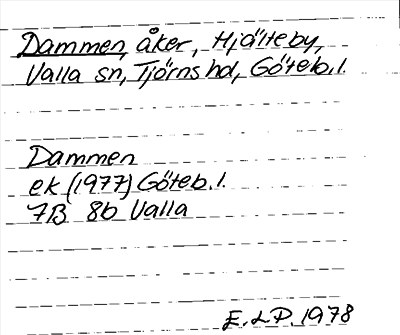 Dammen, åker, Hjälteby,
Valla sn, Tjörns hd, Göteb. l.
Dammen
ek (1977) Göteb. l.
7B 8b Valla
E. L. P. 1978